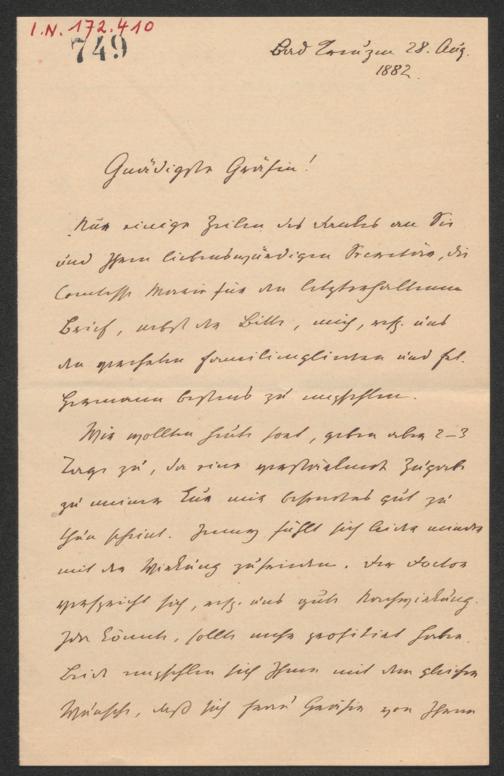 I.N. 172.410
749
Bad Kreuzn 28. Aug.
1882.
Gnädigste Gräfin!
Nur einige Zeilen des Dankes an Sie
und Ihren liebenswürdigen Secretär, die
Comtesse Marie für den letzterhaltenen
Brief, nebst der Bitte, mich, resp. uns
den verehrten Familiengliedern und Frl.
Hermann bestens zu empfehlen.
Wir wollten heute fort, geben aber 2-3
Tage zu, da eine Zugabe
zu meiner Kur mir besonders gut zu
thun scheint. Jenny fühlt sich leider minder
mit der Wirkung zufrieden. Der Doctor
verspricht sich, resp. uns gute Nachwirkung.
Ida könnte, sollte mehr profitirt haben.
Beide empfehlen sich Ihnen mit dem gleichen
Wunsche, daß sich Frau Gräfin von Ihrem